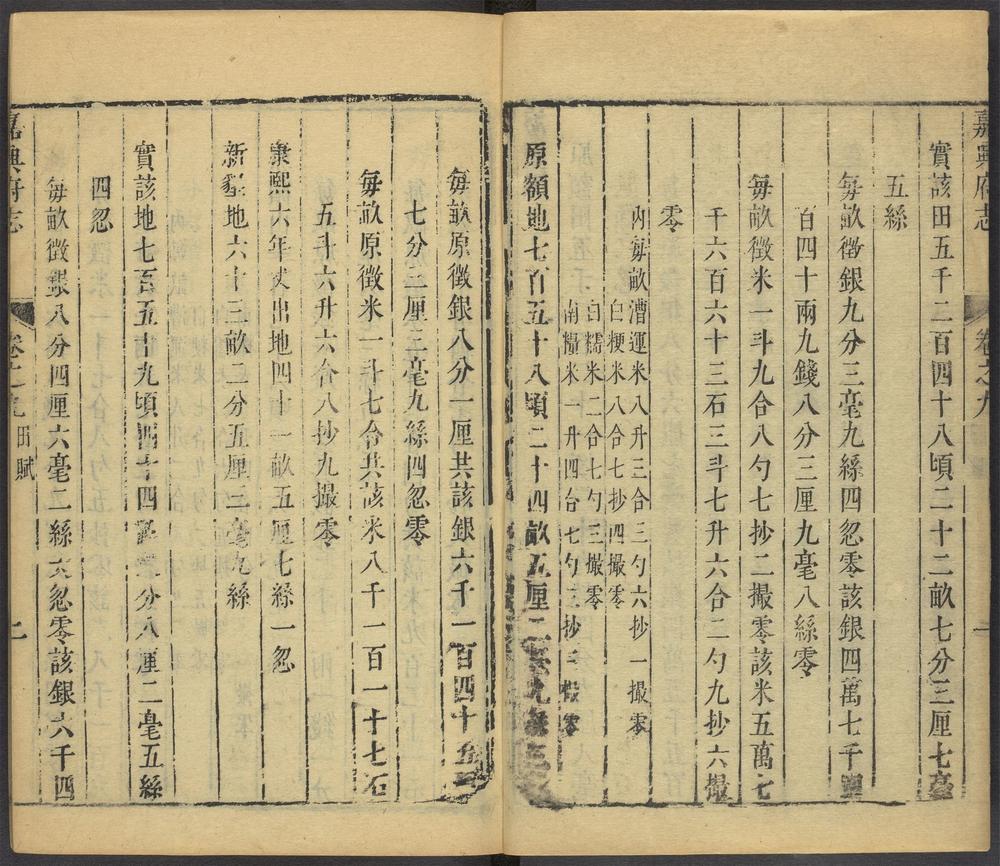 嘉興府志 卷之九
實該田五千二百四十八頃二十二畝七分三厘七毫
五絲
每畝徵銀九分三毫九絲四忽零該銀四萬七千
百四十兩九錢八分三厘九毫八絲零
每畝徵米一斗九合八勺七抄二撮零該米五萬七
千六百六十三石三斗七升六合二勺九抄六撮
零
內每畝漕運米八升三合三勺六抄一撮零
白粳米八合七抄四撮零
白糯米二合七勺三撮零
南糧米一升四合七勺三抄三撮零
原額地七百五十八頃二十四畝五厘二
每畝原徵銀八分一厘共該銀六千一百四十五
七分三厘三毫九絲四忽零
每畝原徵米一斗七合共該米八千一百一十七石
五斗六升六合八抄九撮零
康熙六年丈出地四十一畝五厘七絲一忽
新墾地六十三畝二分五厘三毫九絲
實該地七百五十九頃 十四 分八厘二毫五絲
四忽
每畝徵銀八分四厘六毫二絲六忽零該銀六千四
嘉興府志 卷之九 田賦 二